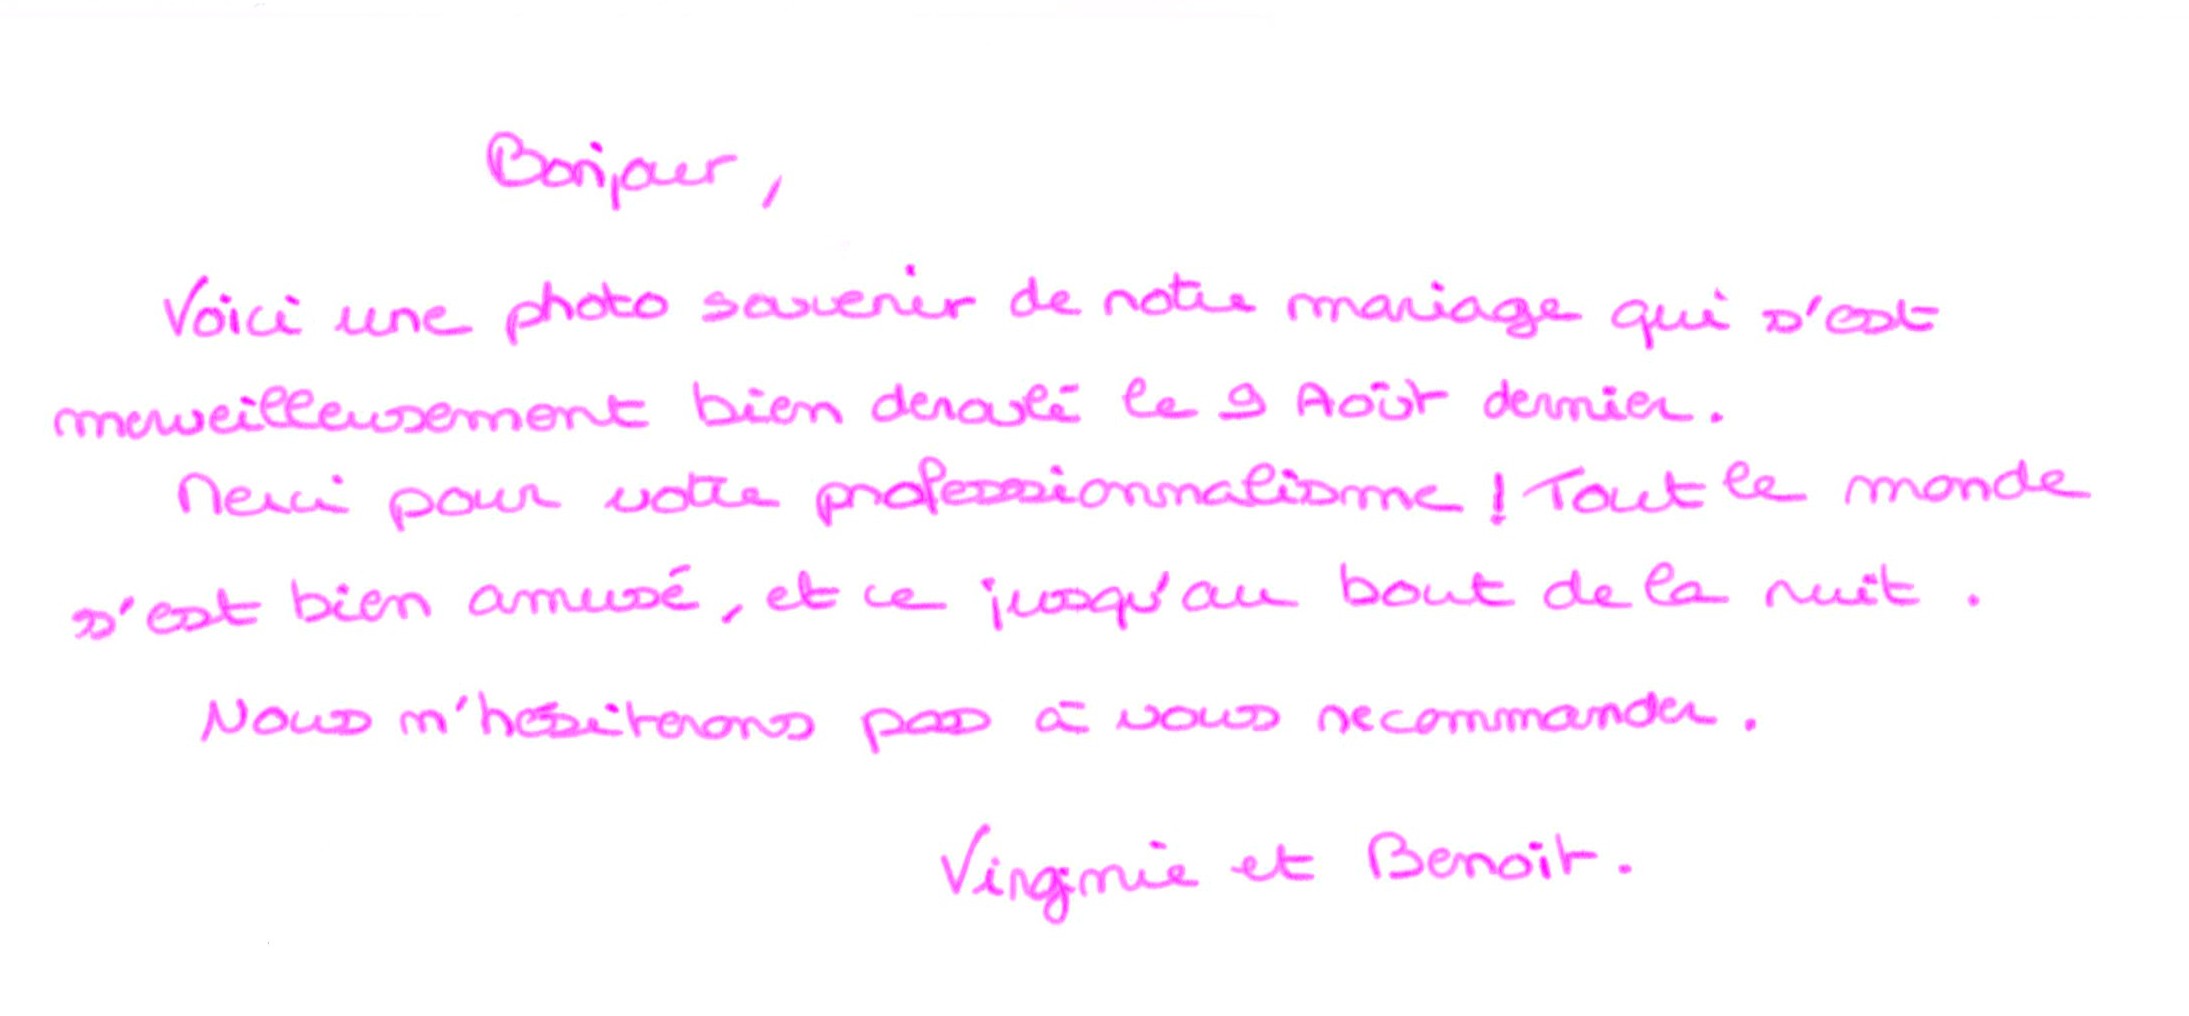 Bonjour,
Voici une photo souvenir de notre mariage qui s'est
merveilleusement bien deroulé le 9 Août dernier.
Merci pour votre professionnalisme ! Tout le monde
s'est bien amusé, et ce jusqu'au bout de la nuit.
Nous n'hésiterons pas à vous recommander.
Virginie et Benoît.